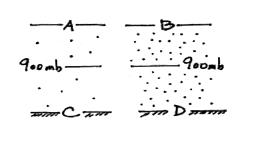 A B
900mb 900mb
C D